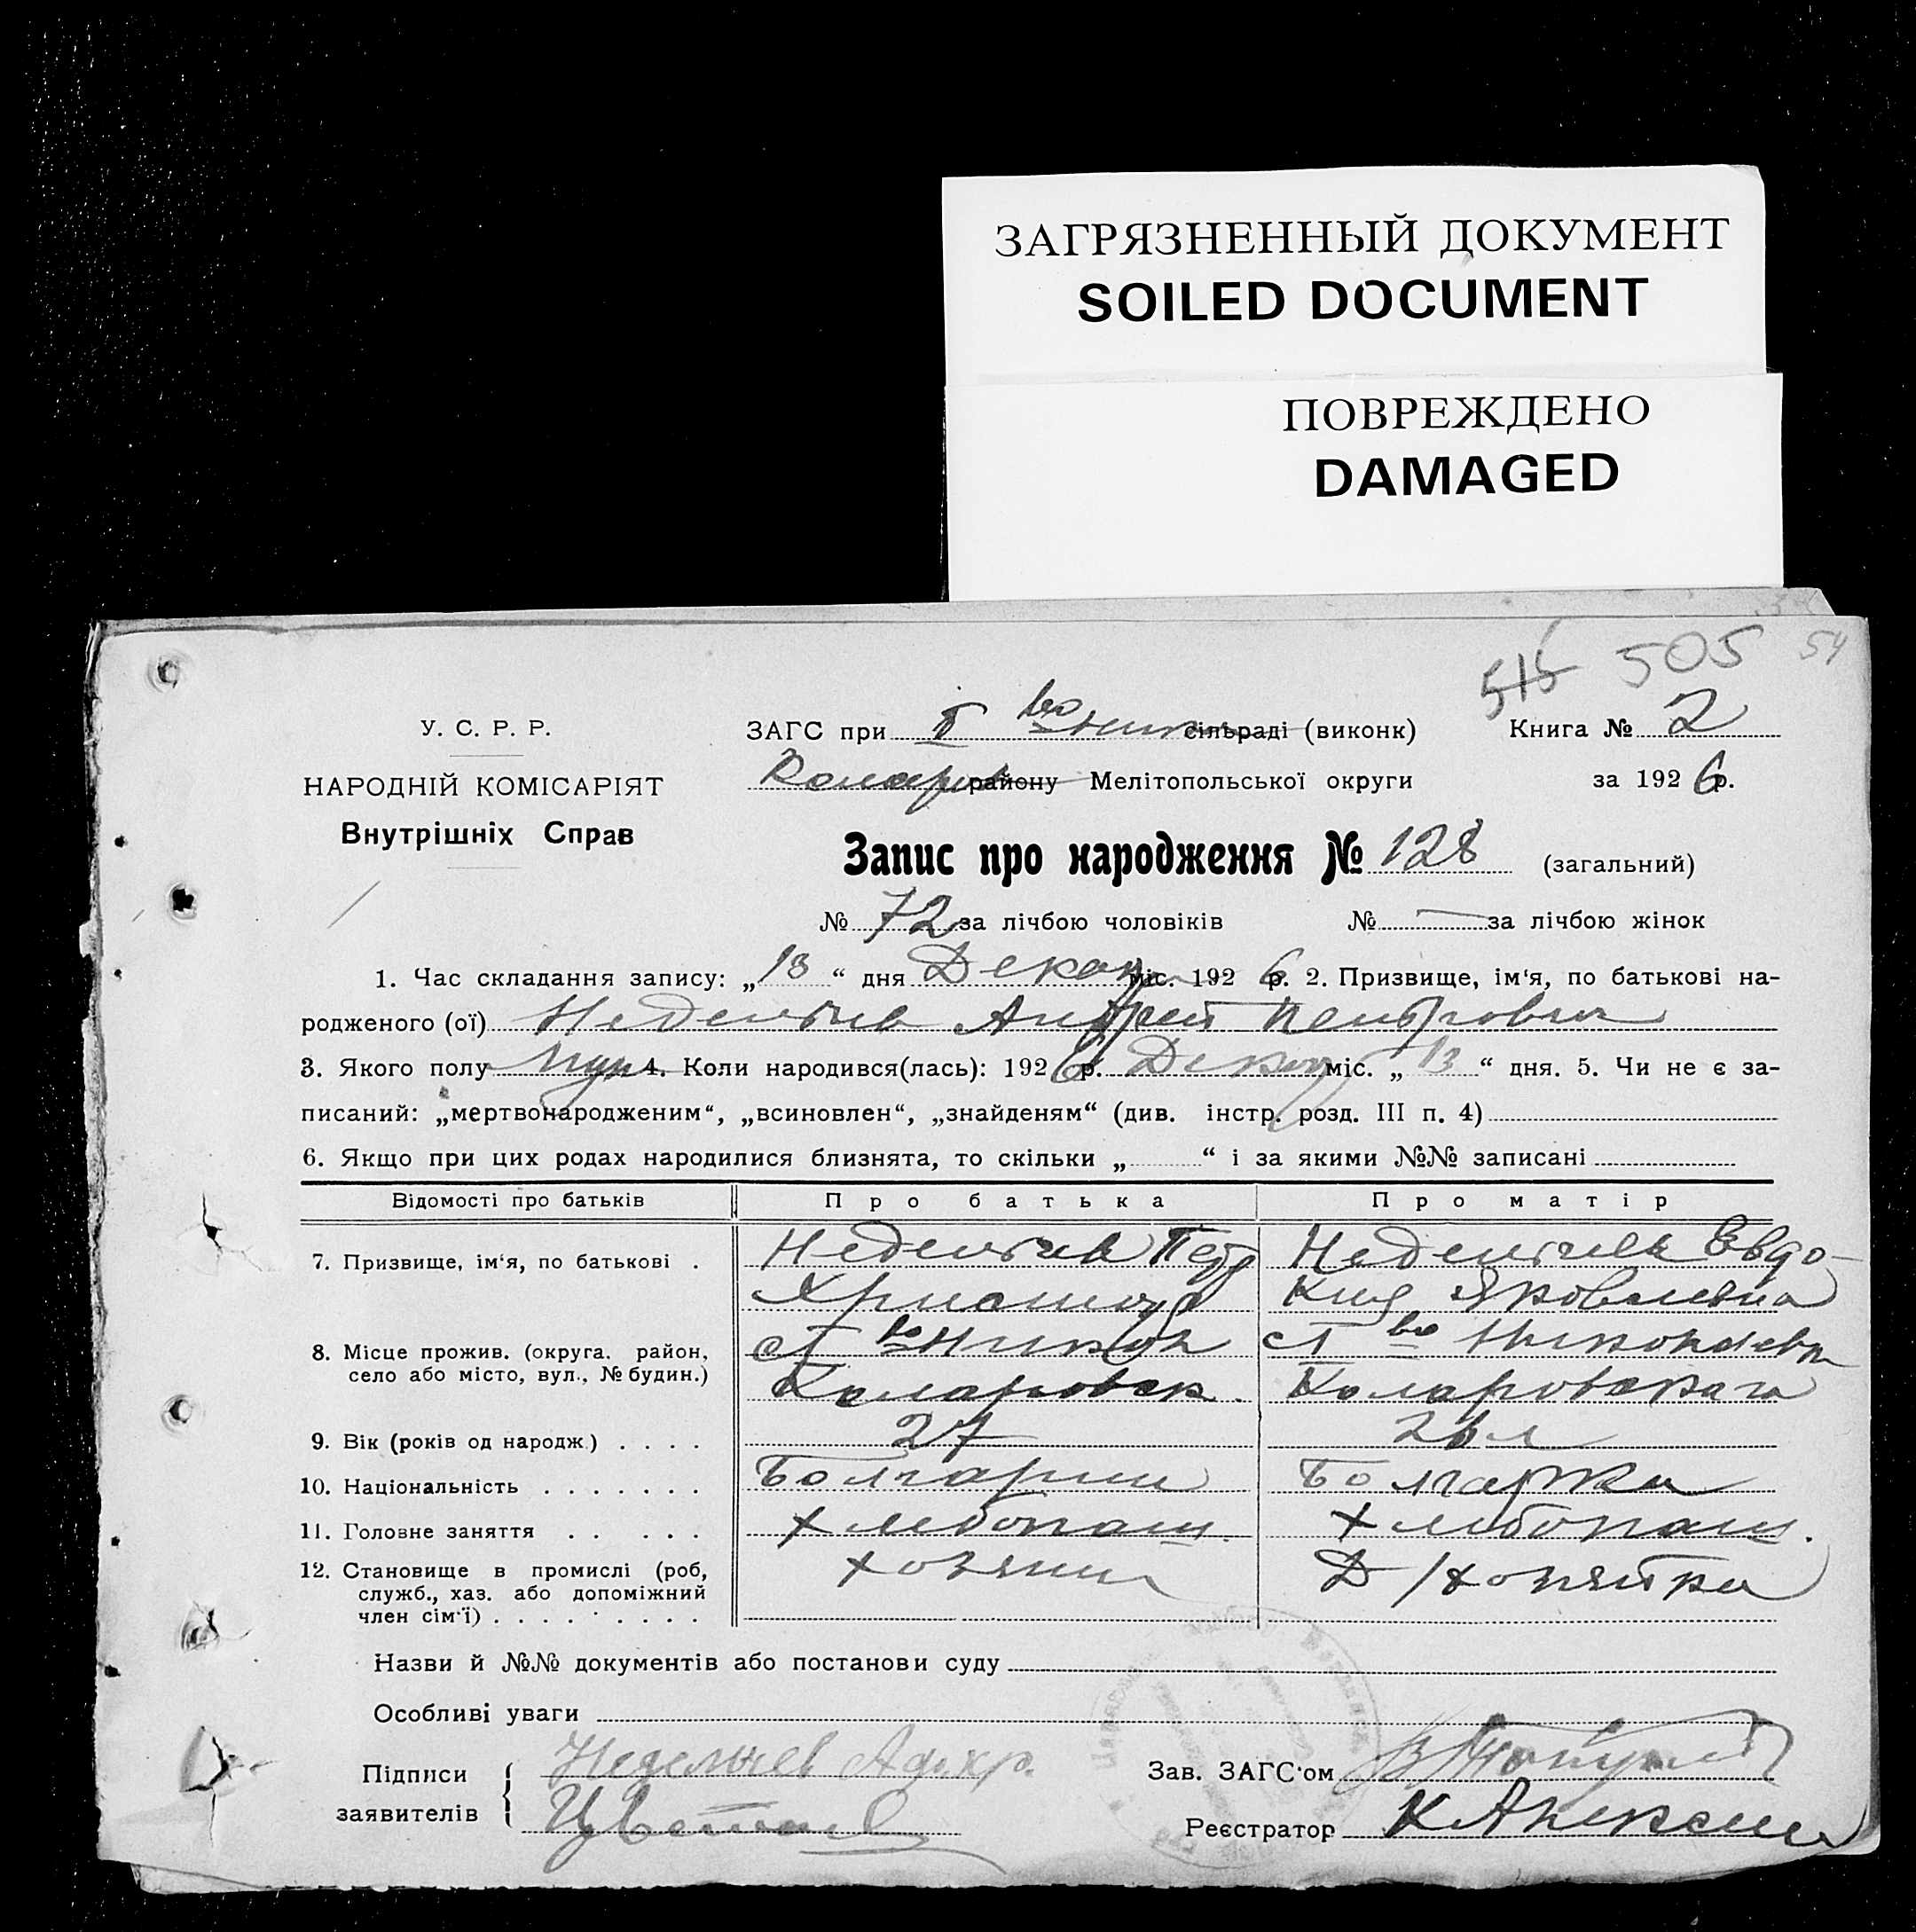 ЗАГРЯЗНЕННЫЙ ДОКУМЕНТ
SOILED DOCUMENT
ПОВРЕЖДЕНО
DAMAGED
515 505 54
У. С. Р. Р.
НАРОДНІЙ КОМІСАРІЯТ
Внутрішніх Справ
ЗАГС при І во Ник сільраді (виконк) Книга № 2
Коларов району Мелітопольської округи за 1926 р.
Запис про народження № 128 (загальний)
№ 72 за лічбою чоловіків № — за лічбою жінок
1. Час складання запису: „18“ дня Декаб міс. 1926 р. 2. Призвище, ім‘я, по батькові на-
родженого (ої) Неделчев Андрей Петрович
3. Якого полу муж 4. Коли народився(лась): 1926 р. Декаб міс. „13“ дня. 5. Чи не є за-
писаний: „мертвонародженим“, „всиновлен“, „знайденям“ (див. інстр. розд. III п. 4)
6. Якщо при цих родах народилися близнята, то скільки „ “ і за якими №№ записані
Відомості про батьків Про батька Про матір
7. Призвище, ім‘я, по батькові . Неделчев Петр Неделчева Евдо-
Христоф кия Яковлевна
8. Місце прожив. (округа, район, с І во Никол с І во Николаевка
село або місто, вул., № будин.) Коларовск. Коларовскага
9. Вік (років од народж.) . . . . 27 26 л
10. Національність . . . . . . . Болгарин Болгарка
11. Головне заняття . . . . . Хлебопаш. Хлебопаш.
12. Становище в промислі (роб, хозяин Д/хозяйка
служб., хаз. або допоміжний
член сім‘ї) . . . . . . . . .
Назви й №№ документів або постанови суду
Особливі уваги
Підписи Неделчев
заявителів Цветков
Зав. ЗАГС‘ом
Реєстратор К